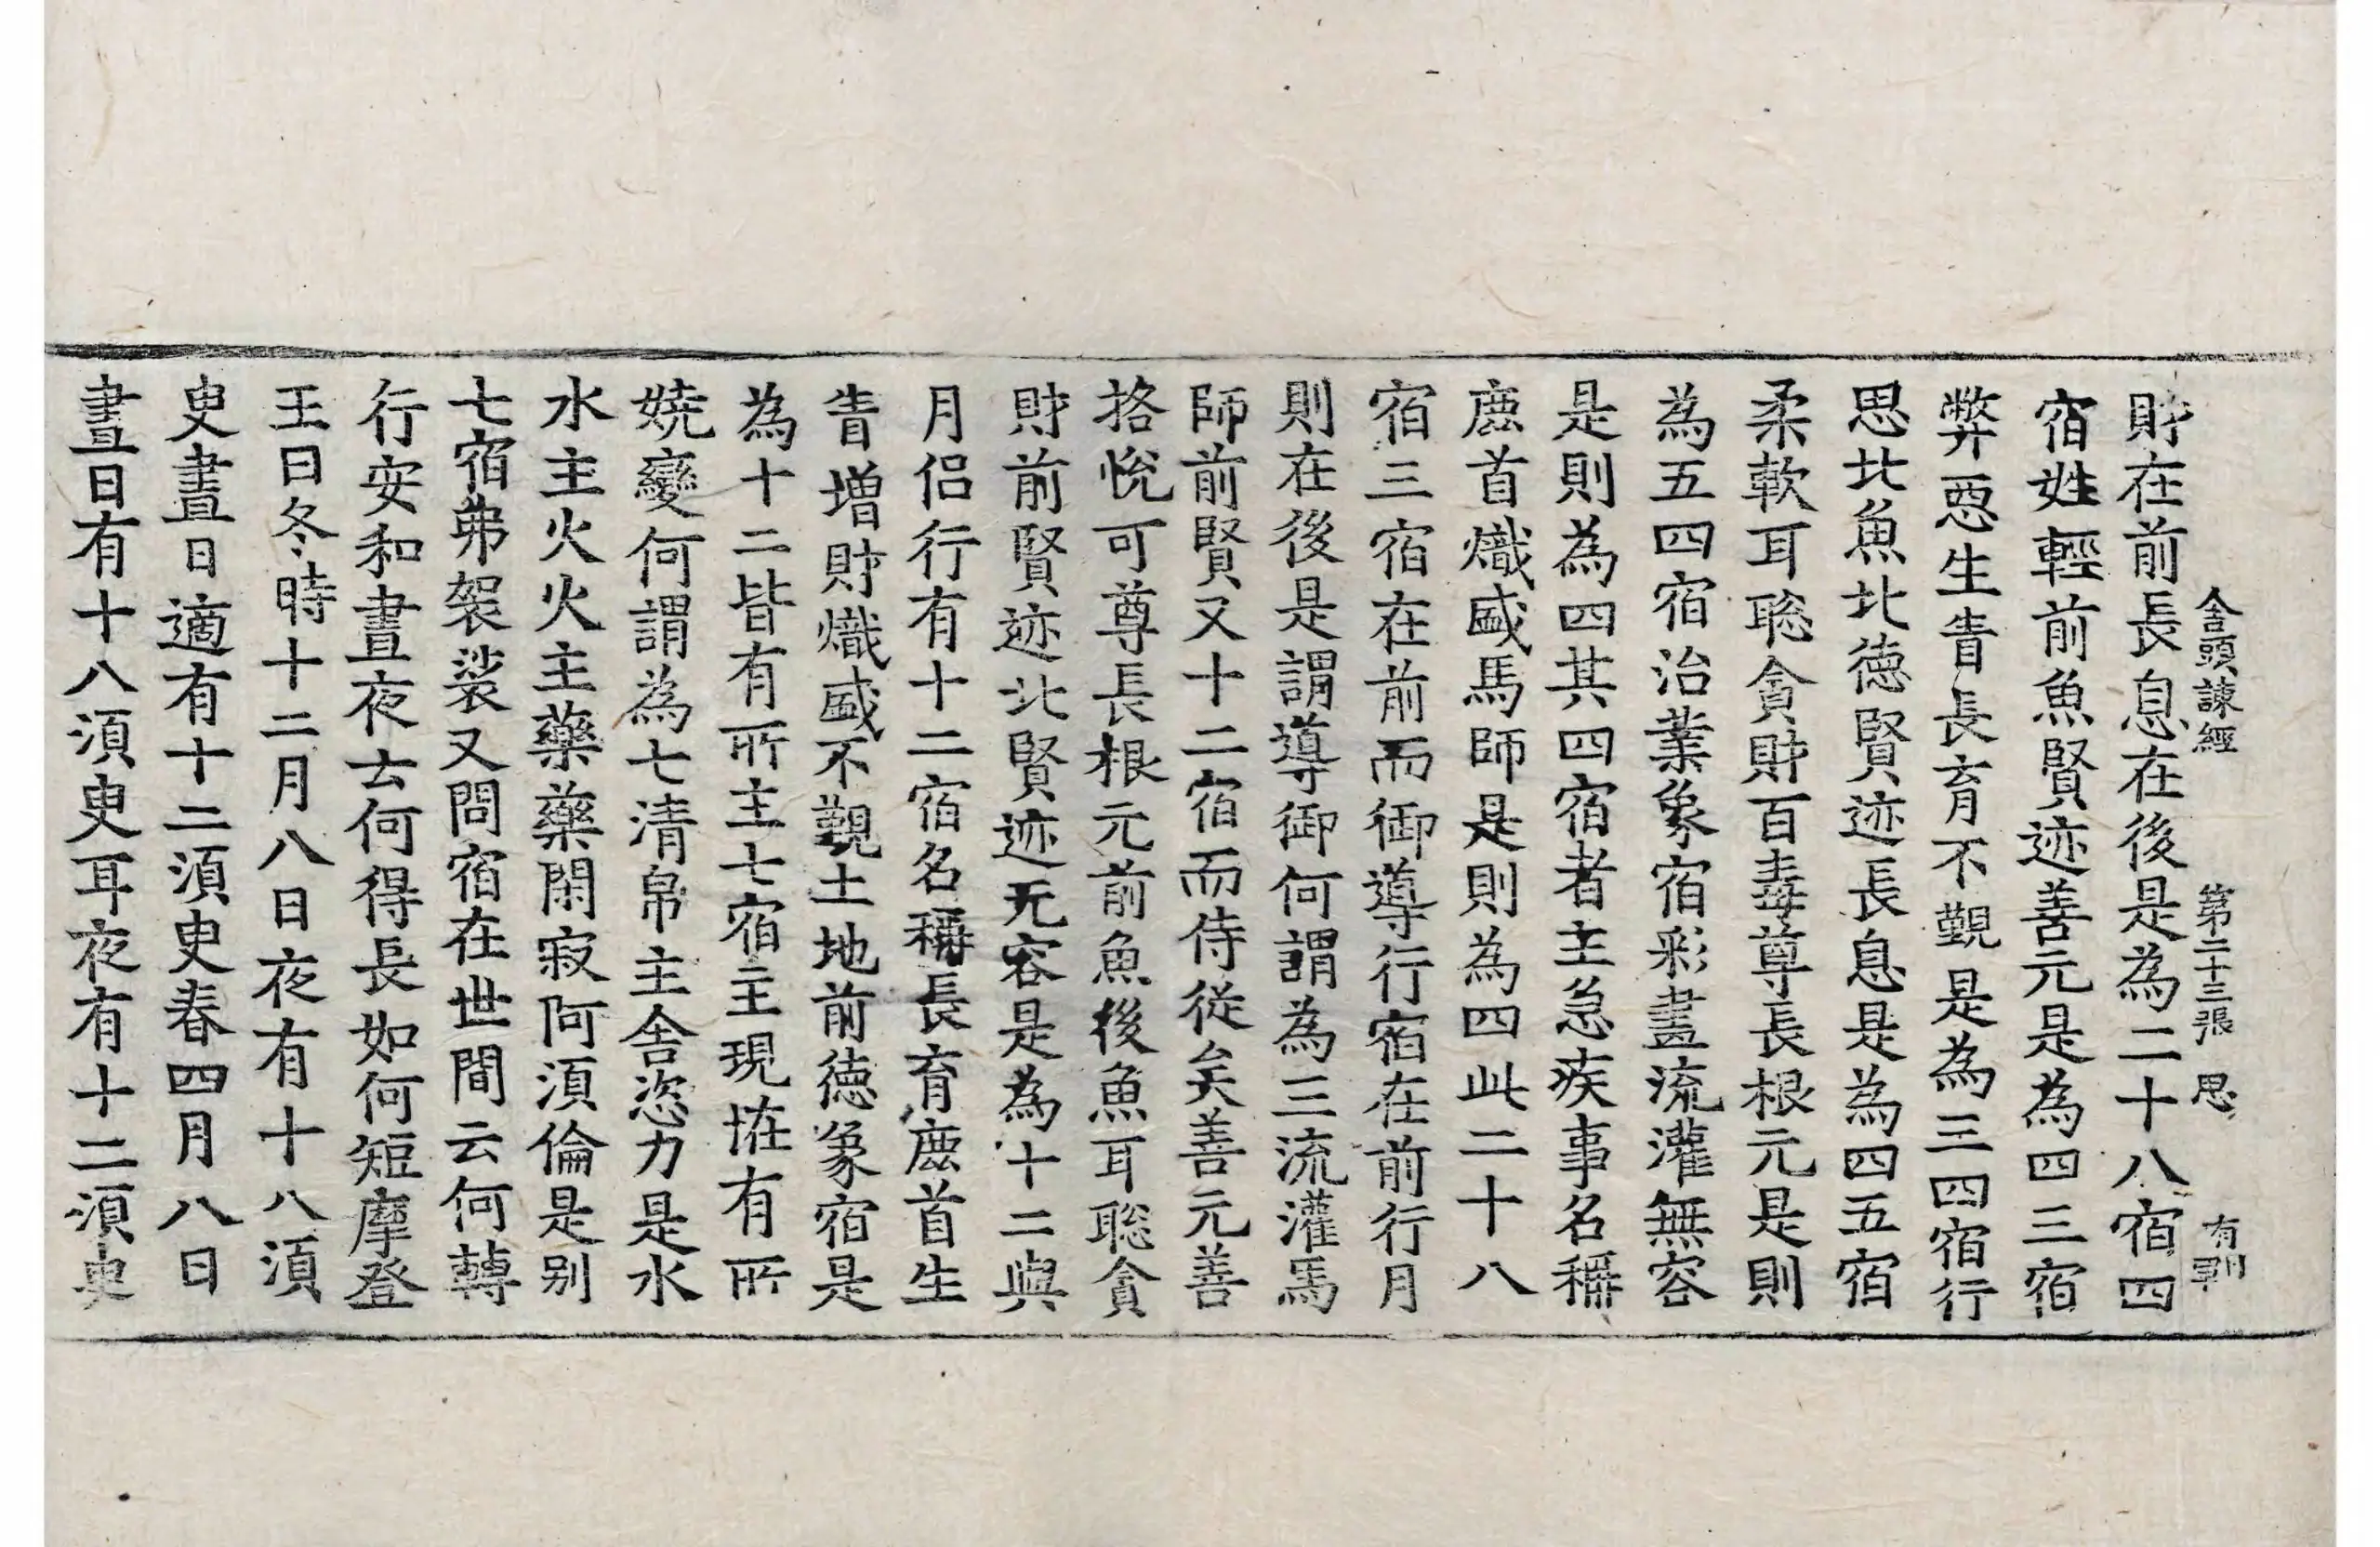 舎頭諫經 第二十三張 思 有剸
財在前長息在後是為二十八宿四
宿姓輕前魚賢迹善元是為四三宿
弊惡生眚長育不覲是為三四宿行
思北魚北德賢迹長息是為四五宿
柔軟耳聡貪財百毒尊長根元是則
為五四宿治業象宿彩畫流灌無容
是則為四其四宿者主急疾事名稱
鹿首熾盛馬師是則為四此二十八
宿三宿在前而御導行宿在前行月
則在後是謂導御何謂為三流灌馬
師前賢又十二宿而侍從矣善元善
挌悅可尊長根元前魚後魚耳聡貪
財前賢迹北賢迹无容是為十二與
月侶行有十二宿名稱長育鹿首生
眚增財熾盛不覲土地前德象宿是
為十二皆有所主七宿主現在有所
嬈變何謂為七清帛主舎恣力是水
水主火火主藥藥閑寂阿須倫是別
七宿弟袈裟又問宿在世間云何轉
行安和晝夜云何得長如何短摩登
王曰冬時十二月八日夜有十八須
臾晝日適有十二須臾春四月八日
晝日有十八須臾耳夜有十二須臾